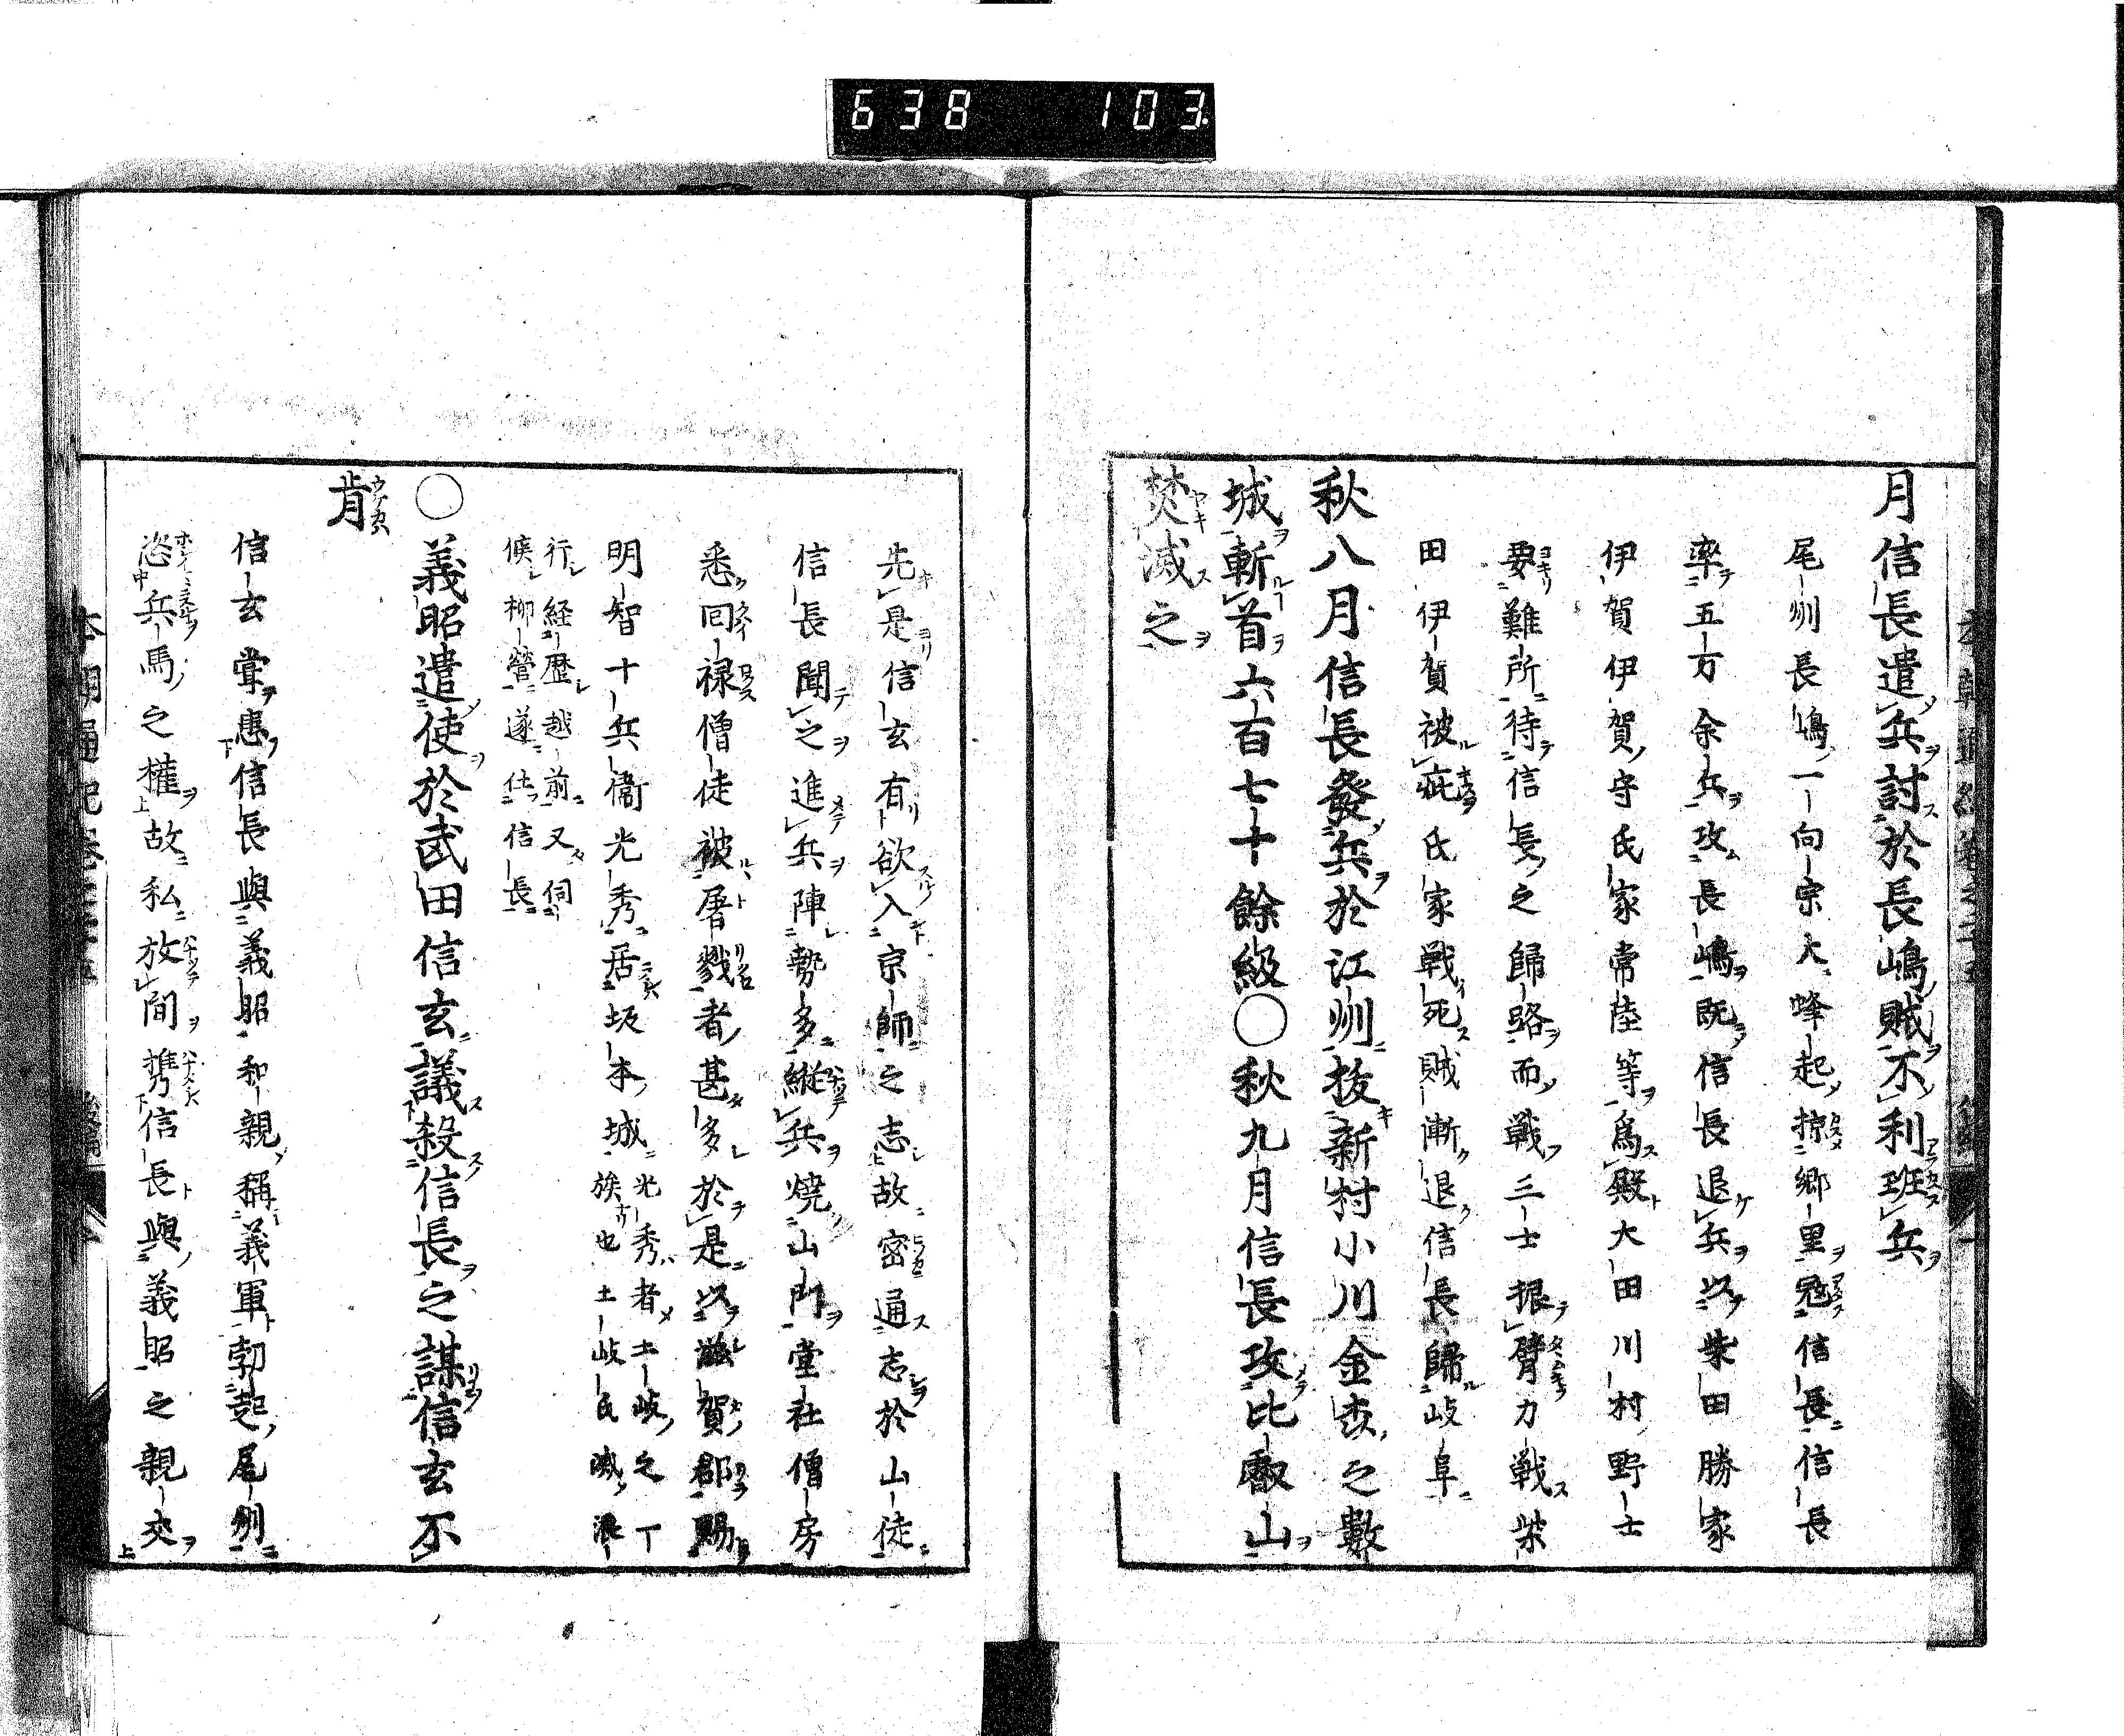 638 103
月信長遣兵討於長嶋賊不利班兵
尾州長嶋一向宗大蜂起掠郷里冦信長信長
率五万余兵攻長嶋既信長退兵以柴田勝家
伊賀伊賀守氏家常陸等為殿大田川村野士
要難所待信長之歸路而戦三士振臂力戦柴
田伊賀被疵氏家戦死賊漸退信長歸岐阜
秋八月信長發兵於江州抜新村小川金森之數
城斬首六百七十餘級〇秋九月信長攻比叡山
焚滅之
先是信玄有欲入京師之志故密通志於山徒
信長聞之進兵陣勢多縦兵焼山門堂社僧房
悉回禄僧徒被屠戮者甚多於是以滋賀郡賜
明智十兵衞光秀居坂本城光秀者土岐之丁
族也土岐氏滅浪
行経歴越前又伺
候柳營遂仕信長
〇義昭遣使於武田信玄議殺信長之謀信玄不
肯
信玄常患信長與義昭和親稱義軍勃起尾州
恣兵馬之權故私放間携信長與義昭之親交